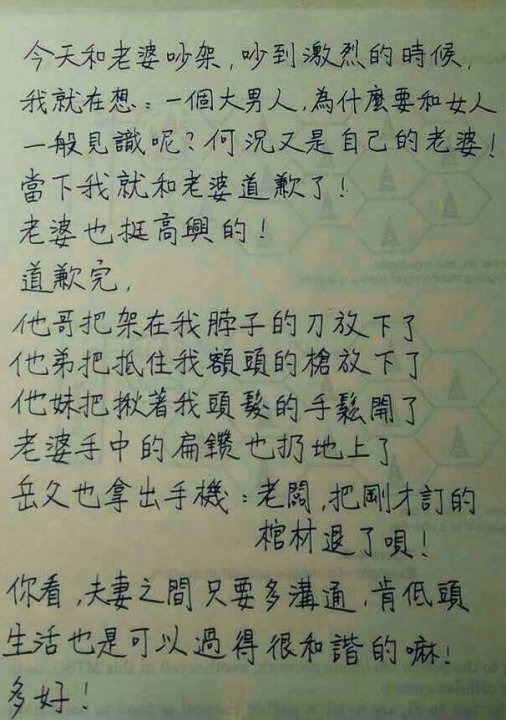 今天和老婆吵架,吵到激烈的時候,
我就在想:一個大男人,為什麼要和女人
一般見識呢?何況又是自己的老婆!
當下我就和老婆道歉了!
老婆也挺高興的!
道歉完,
他哥把架在我脖子的刀放下了
他弟把抵住我額頭的槍放下了
他妹把揪著我頭髮的手鬆開了
老婆手中的扁鑽也扔地上了
岳父也拿出手機:老闆,把剛才訂的
棺材退了唄!
你看,夫妻之間只要多溝通,肯低頭
生活也是可以過得很和諧的嘛!
多好!